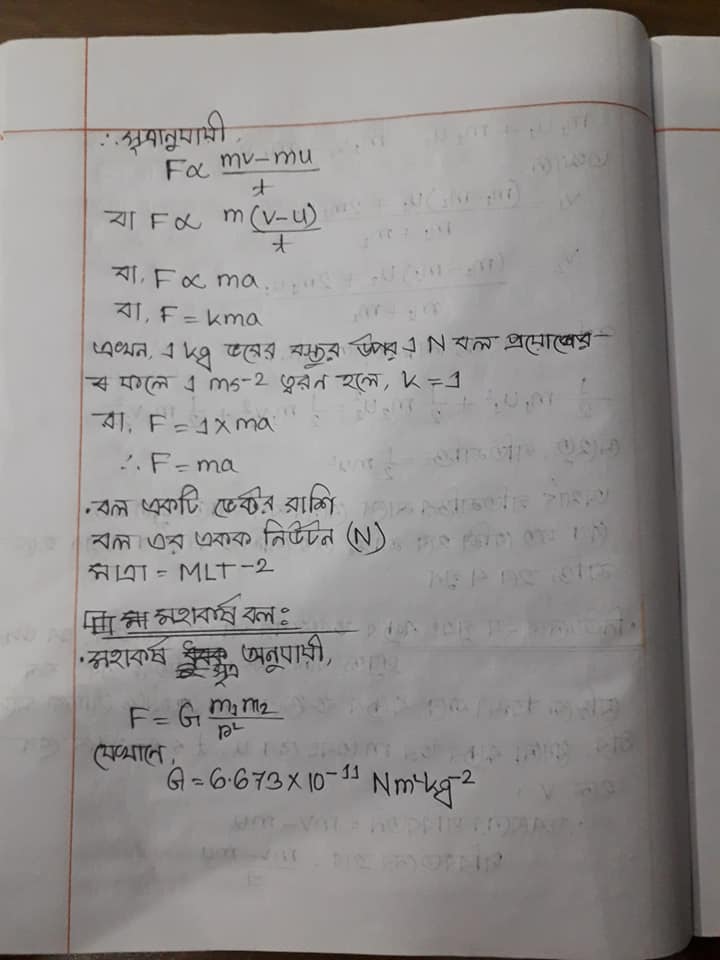 ∴ সূত্রানুযায়ী,
F ∝ mv-mu / t
বা F ∝ m(v-u) / t
বা, F ∝ ma
বা, F = kma
এখন, 1 kg ভরের বস্তুর উপর 1 N বল প্রয়োগের
ফলে 1 ms-2 ত্বরন হলে, K = 1
বা, F = 1 × ma
∴ F = ma
• বল একটি ভেক্টর রাশি
বল এর একক নিউটন (N)
মাত্রা = MLT -2
মহাকর্ষ বল:
• মহাকর্ষ সূত্র অনুযায়ী,
F = G m₁m₂ / r²
যেখানে,
G = 6.673 × 10⁻¹¹ Nm²kg⁻²